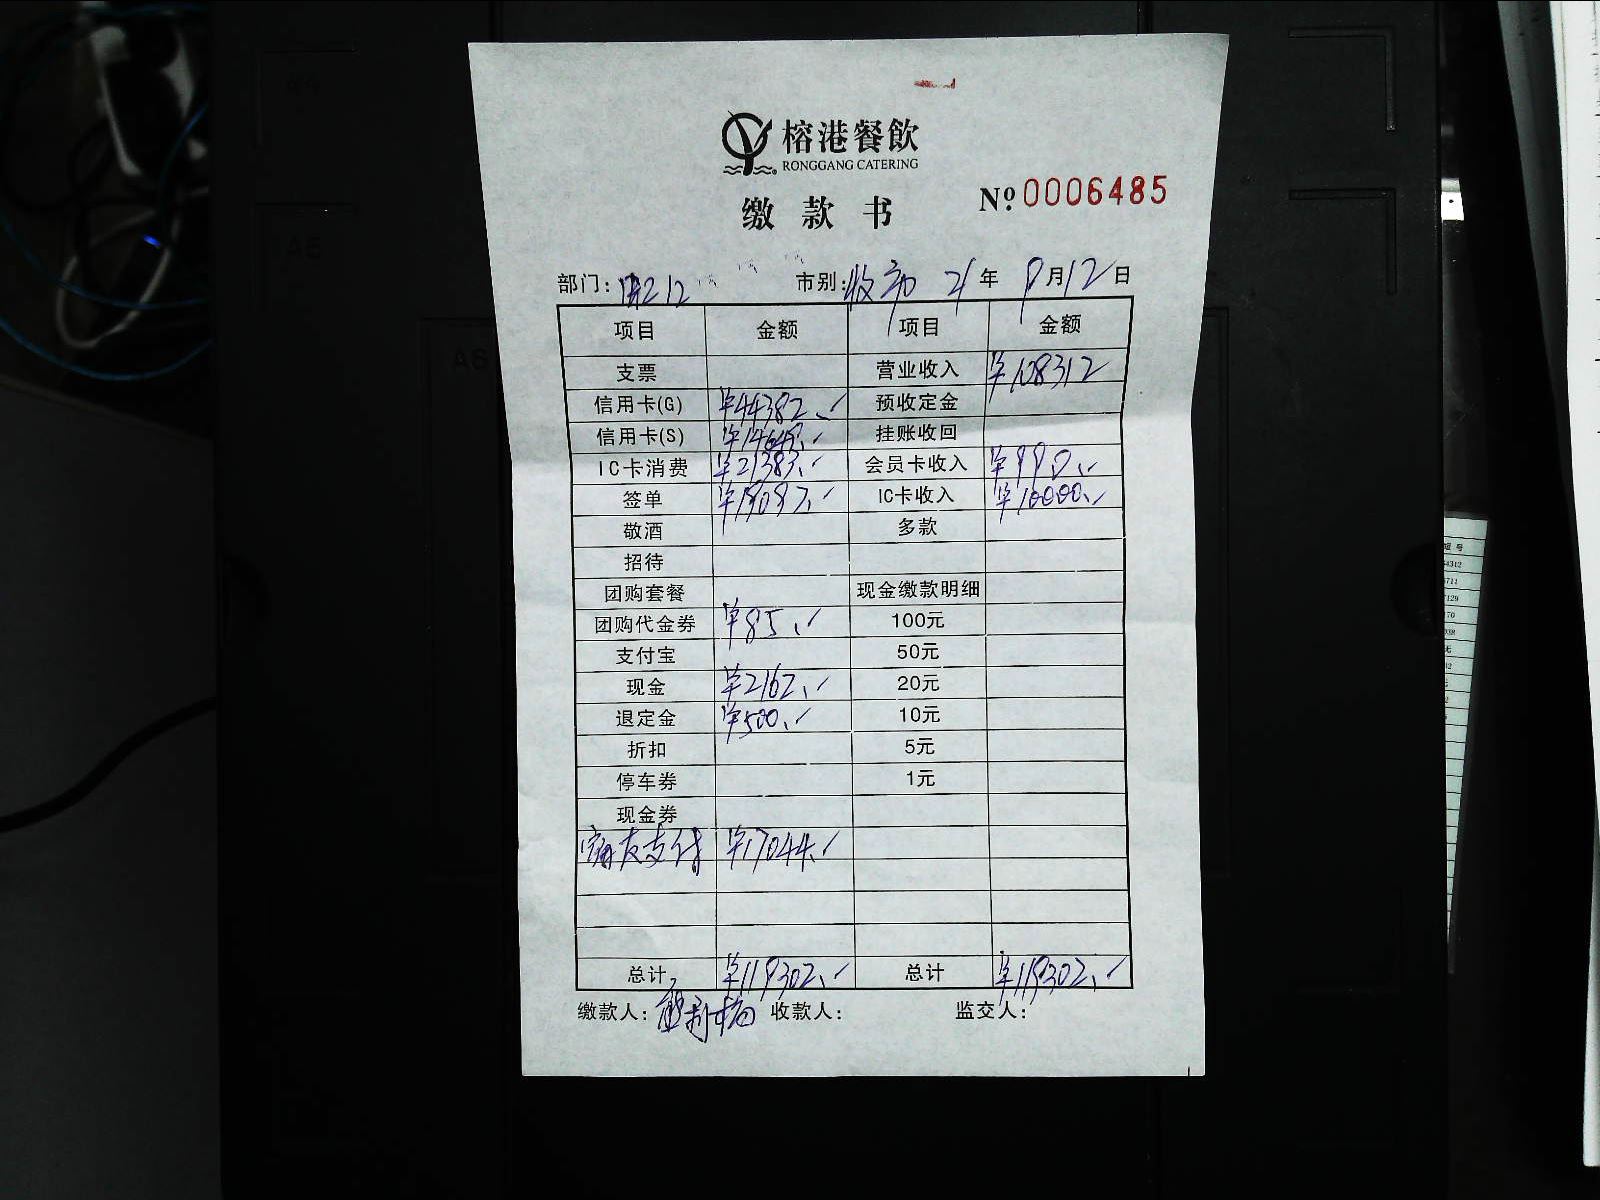 榕港餐飲
RONGGANG CATERING
缴款书
№0006485
部门: 市别: 21年 9月12日
项目 金额 项目 金额
支票 营业收入 ¥108312
信用卡(G) ¥44382.✓ 预收定金
信用卡(S) ¥14649.✓ 挂账收回
IC卡消费 ¥21383.✓ 会员卡收入 ¥990.✓
签单 ¥19097.✓ IC卡收入 ¥10000.✓
敬酒 多款
招待
团购套餐 现金缴款明细
团购代金券 ¥85.✓ 100元
支付宝 50元
现金 ¥2162.✓ 20元
退定金 ¥500.✓ 10元
折扣 5元
停车券 1元
现金券
友支付 ¥17044.✓
总计 ¥119302.✓ 总计 ¥119302.✓
缴款人: 收款人: 监交人:
A6